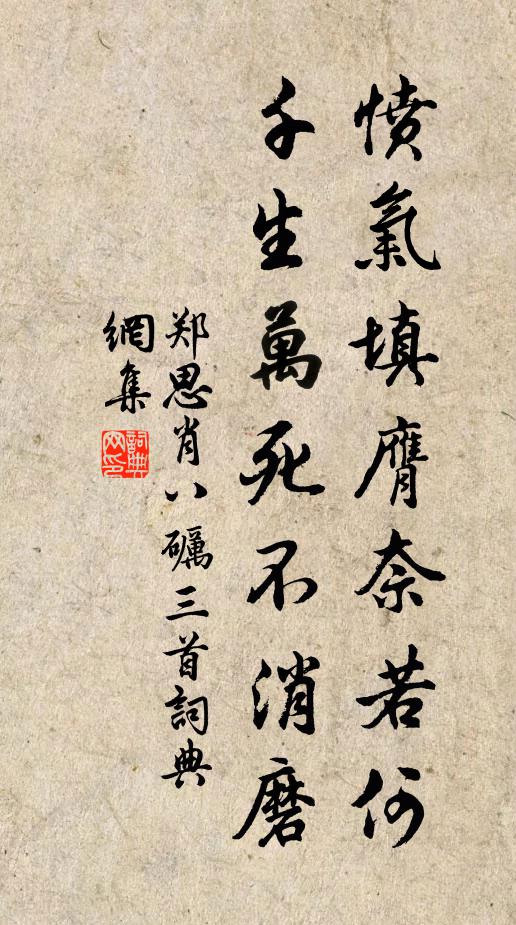 憤氣填膺奈若何
千生萬死不消磨
郑思肖八礪三首詞典
網集
詞典網印